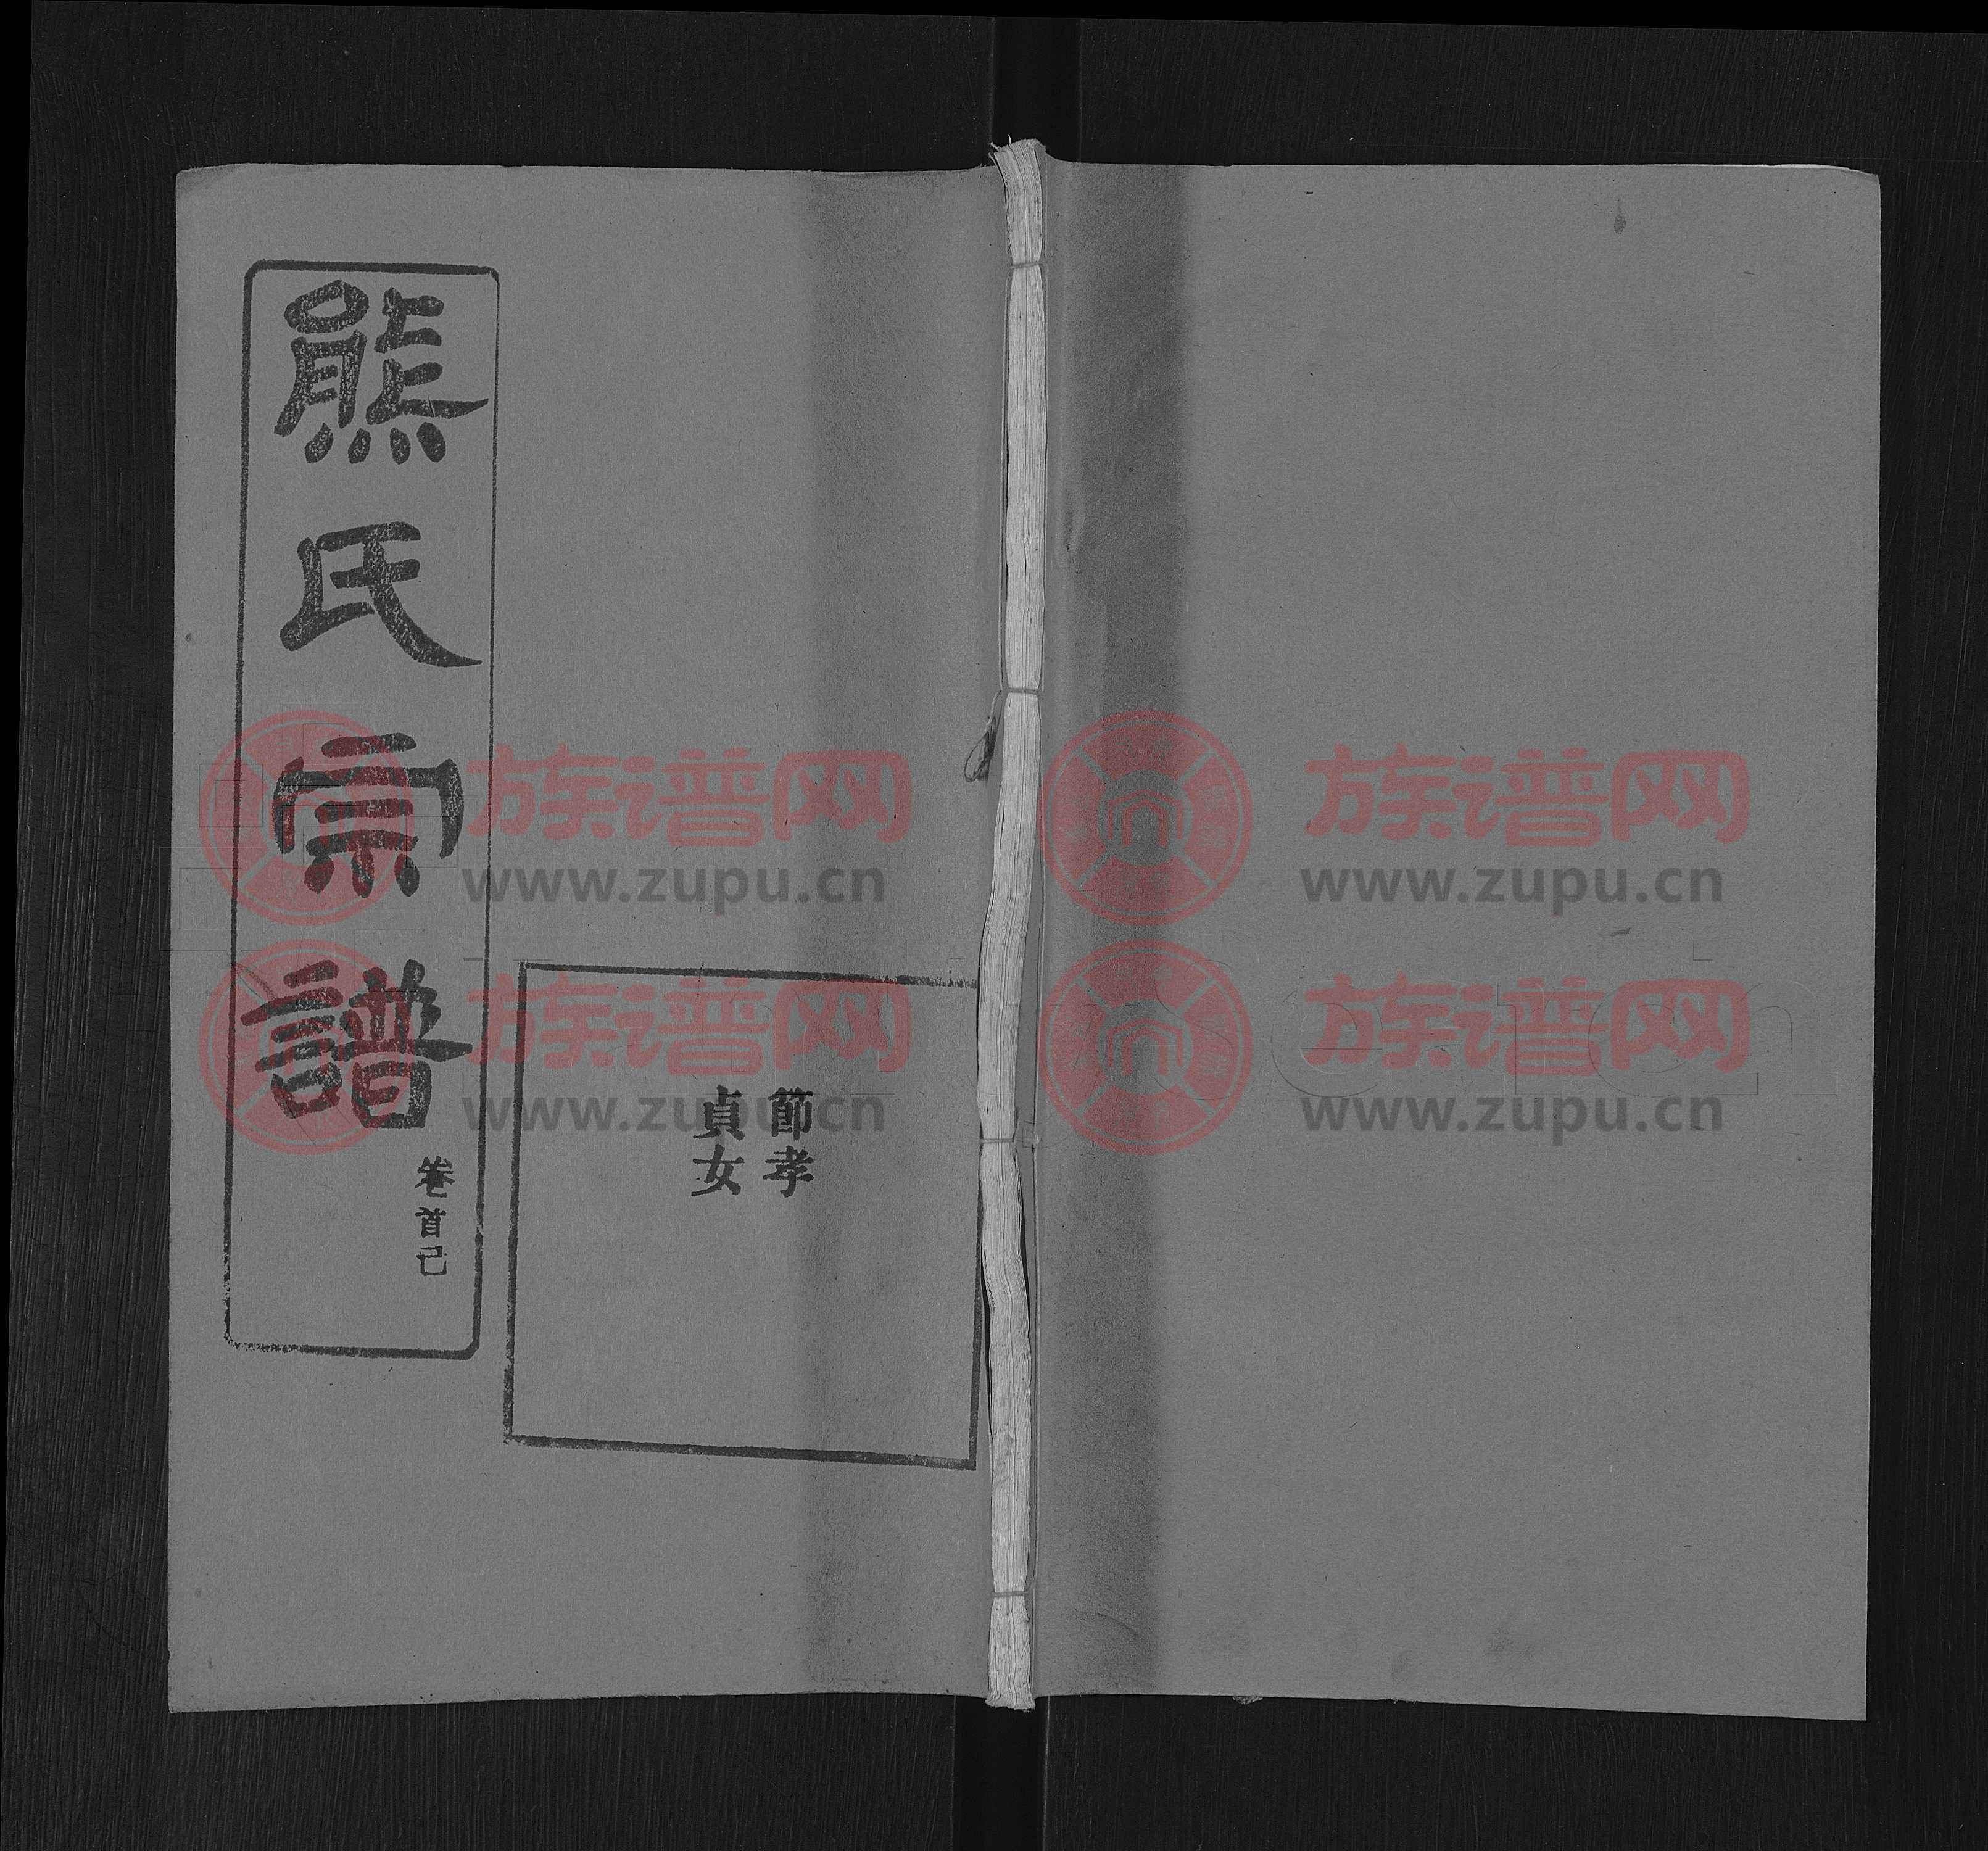 熊氏宗譜
卷首己
節孝
貞女
族谱网
www.zupu.cn
族谱网
www.zupu.cn
族谱网
www.zupu.cn
族谱网
www.zupu.cn